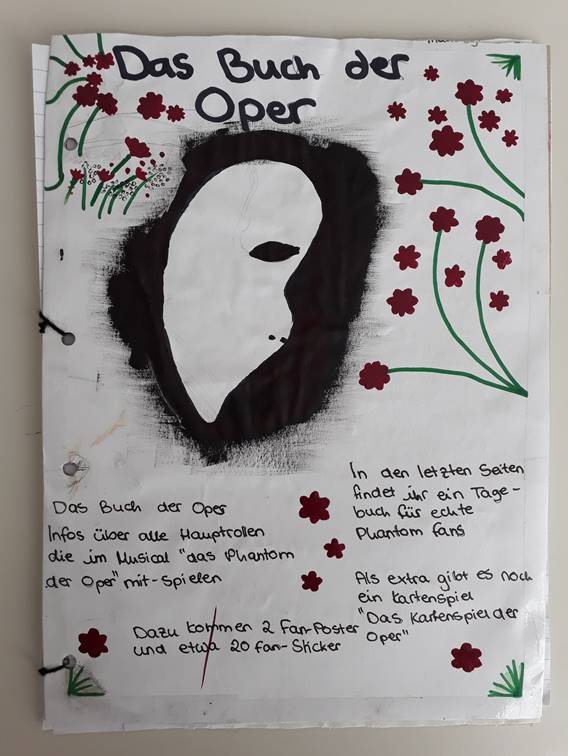 Das Buch der
Oper
Das Buch der Oper
Infos über alle Hauptrollen
die im Musical "das Phantom
der Oper" mit-spielen
In den letzten Seiten
findet ihr ein Tage-
buch für echte
Phantom Fans
Als extra gibt es noch
ein Kartenspiel
"Das Kartenspiel der
Oper"
Dazu kommen 2 Fan-Poster
und etwa 20 fan-Sticker